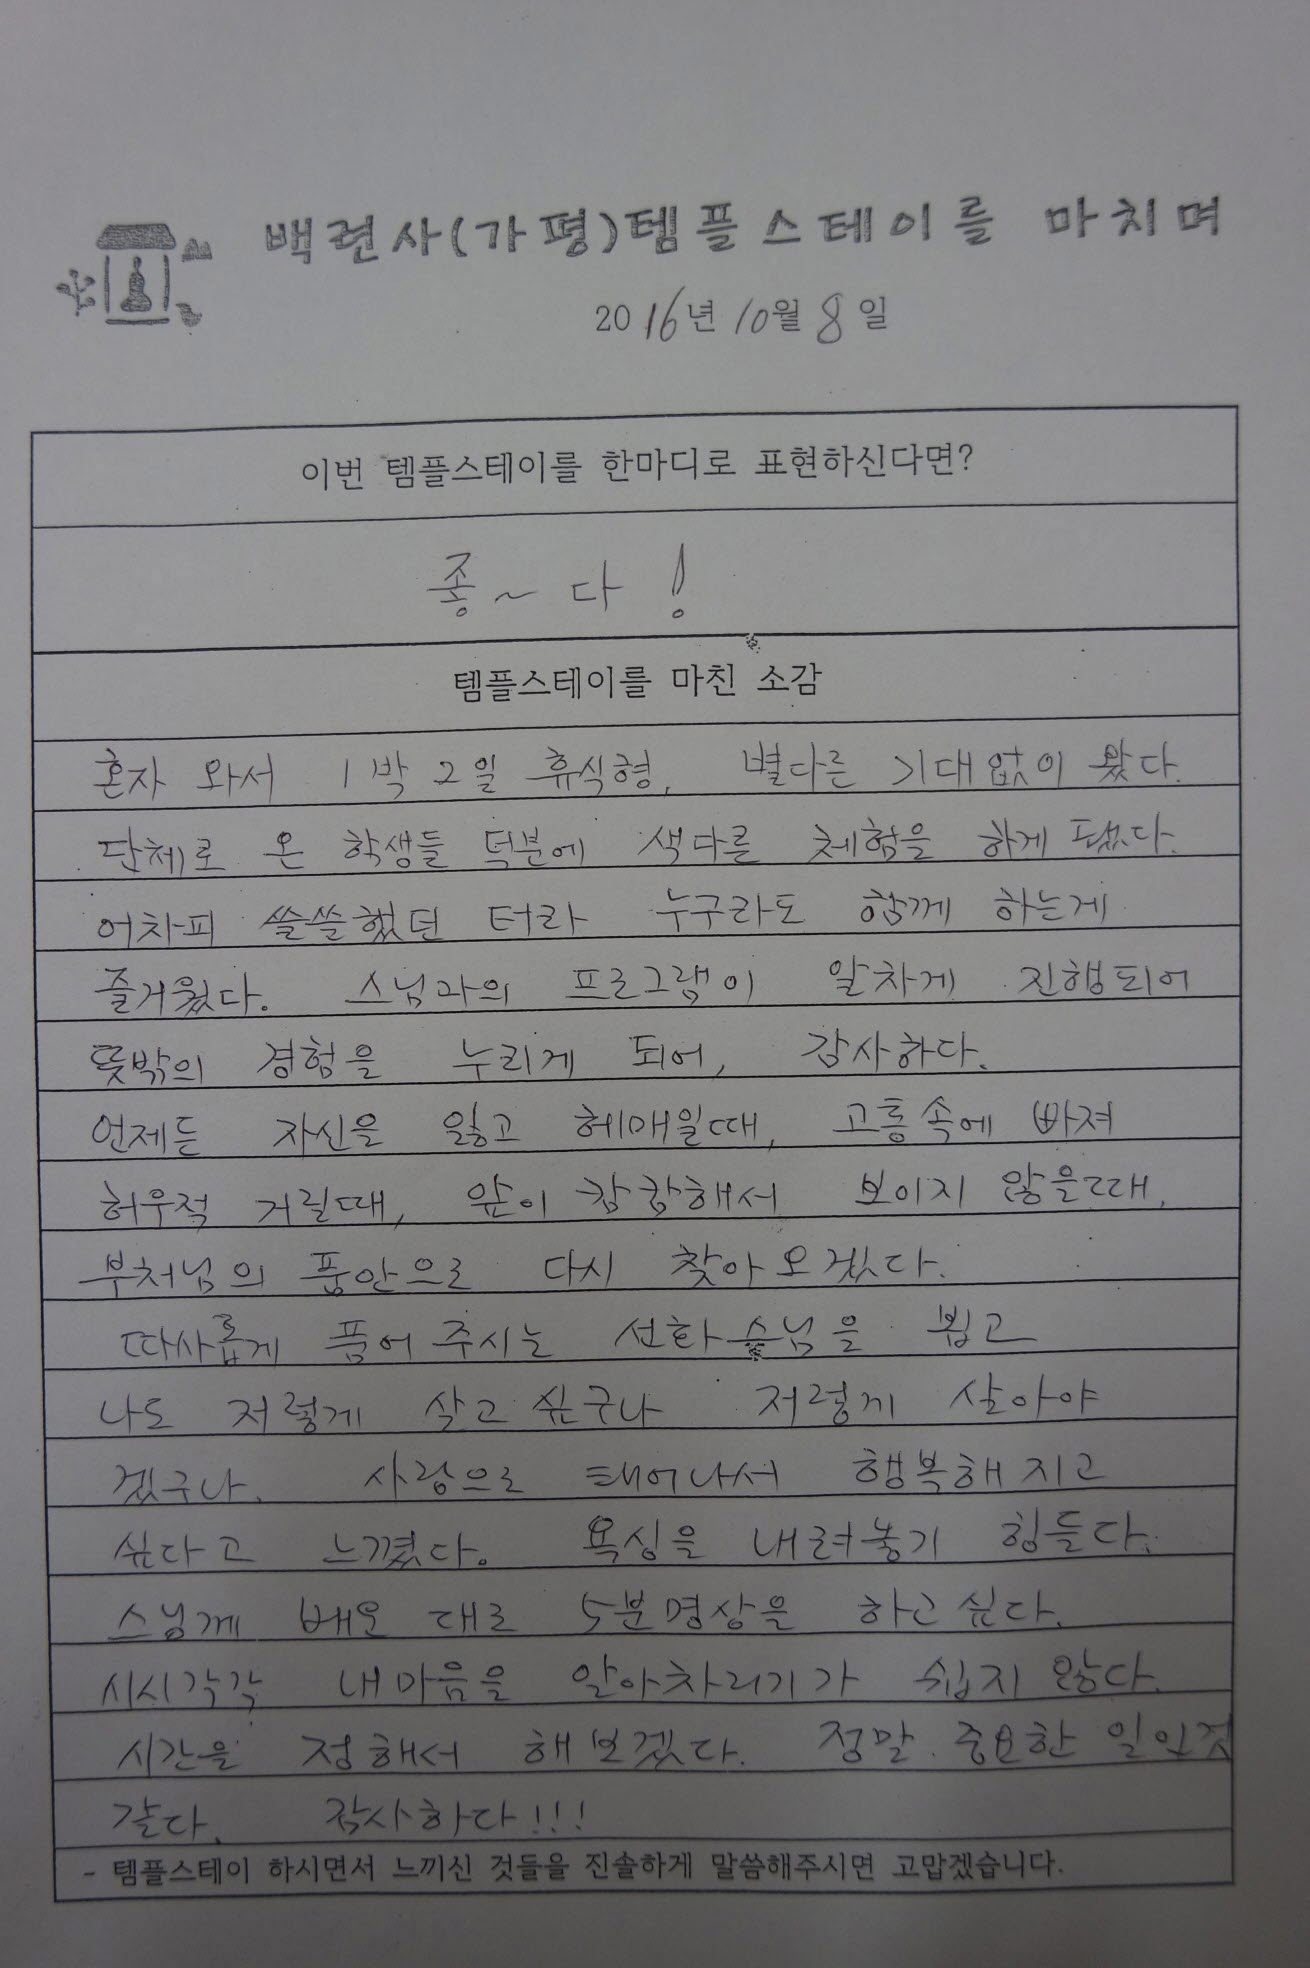 백련사(가평)템플스테이를 마치며
2016년 10월 8일
이번 템플스테이를 한마디로 표현하신다면?
좋~다!
템플스테이를 마친 소감
혼자 와서 1박2일 휴식형, 별다른 기대없이 왔다.
단체로 온 학생들 덕분에 색다른 체험을 하게 됐었다.
어차피 쓸쓸했던 터라 누구라도 함께 하는게
즐거웠다. 스님과의 프로그램이 알차게 진행되어
뜻밖의 경험을 누리게 되어, 감사하다.
언제든 자신을 잃고 헤매일때, 고통속에 빠져
허우적 거릴때, 앞이 캄캄해서 보이지 않을때,
부처님의 품안으로 다시 찾아오겠다.
따사롭게 품어주시는 선화스님을 뵙고
나도 저렇게 살고 싶구나 저렇게 살아야
겠구나. 사랑으로 태어나서 행복해지고
싶다고 느꼈다. 욕심을 내려놓기 힘들다.
스님께 배운 대로 5분명상을 하고싶다.
시시각각 내마음을 알아차리기가 쉽지않다.
시간을 정해서 해보겠다. 정말 중요한 일인것
같다. 감사하다!!!
- 템플스테이 하시면서 느끼신 것들을 진솔하게 말씀해주시면 고맙겠습니다.